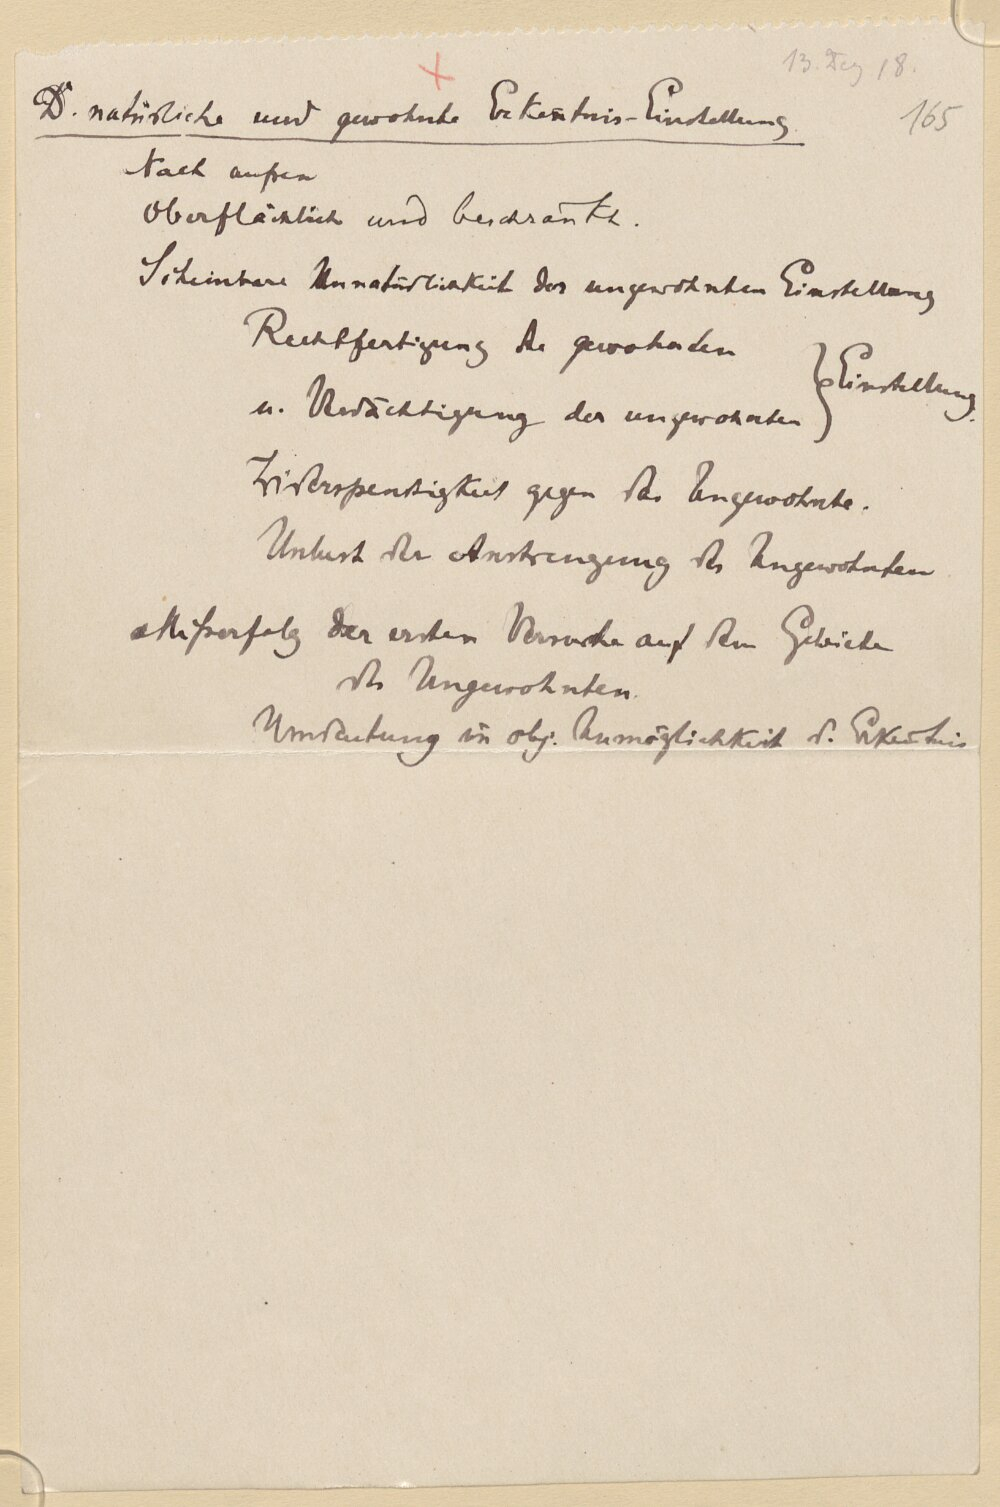 13. Dez 18.
165
D. natürliche und gewohnte Erkeñtnis-Einstellung.
Nach außen
Oberflächlich und beschränkt.
Scheinbare Unnatürlichkeit der ungewohnten Einstellung
Rechtfertigung der gewohnten
u. Verdächtigung der ungewohnten } Einstellung.
Widerspenstigkeit gegen das Ungewohnte.
Unlust der Anstrengung des Ungewohnten
Mißerfolg der ersten Versuche auf dem Gebiete
des Ungewohnten.
Umdeutung in obj. Unmöglichkeit d. Erkeñtnis